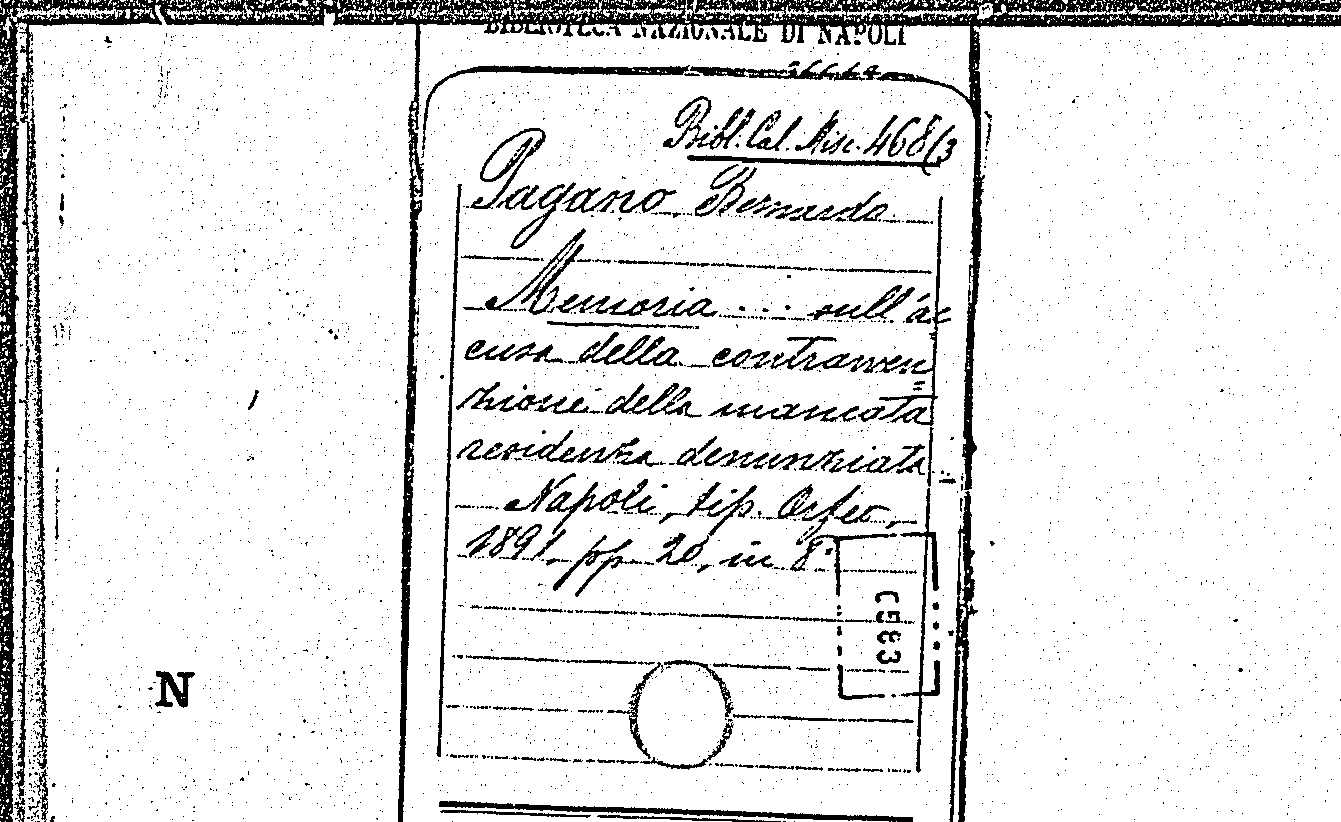 BIBLIOTECA NAZIONALE DI NAPOLI
Bibl. Cal. Misc. 468(3
Pagano Bernardo
Memoria ... sull'ac
cusa della contravven=
zione della mancata
residenza denunziata.
Napoli, tip. Orfeo,
1891. pp. 20, in 8°
C583
N